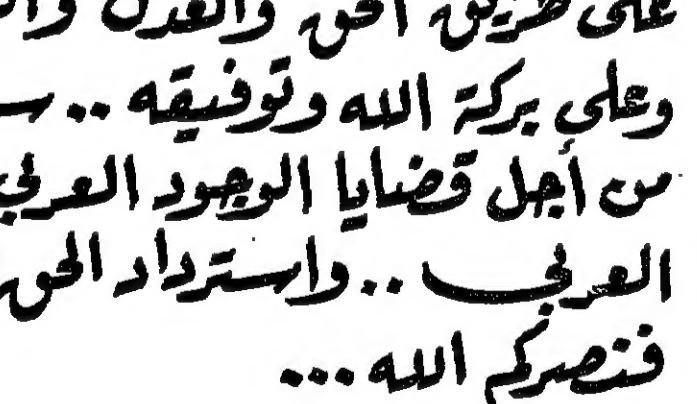 على طريق الحق والعدل
وعلى بركة الله وتوفيقه ..
من أجل قضايا الوجود العربي
العربي .. واسترداد الحق
فنصركم الله ...